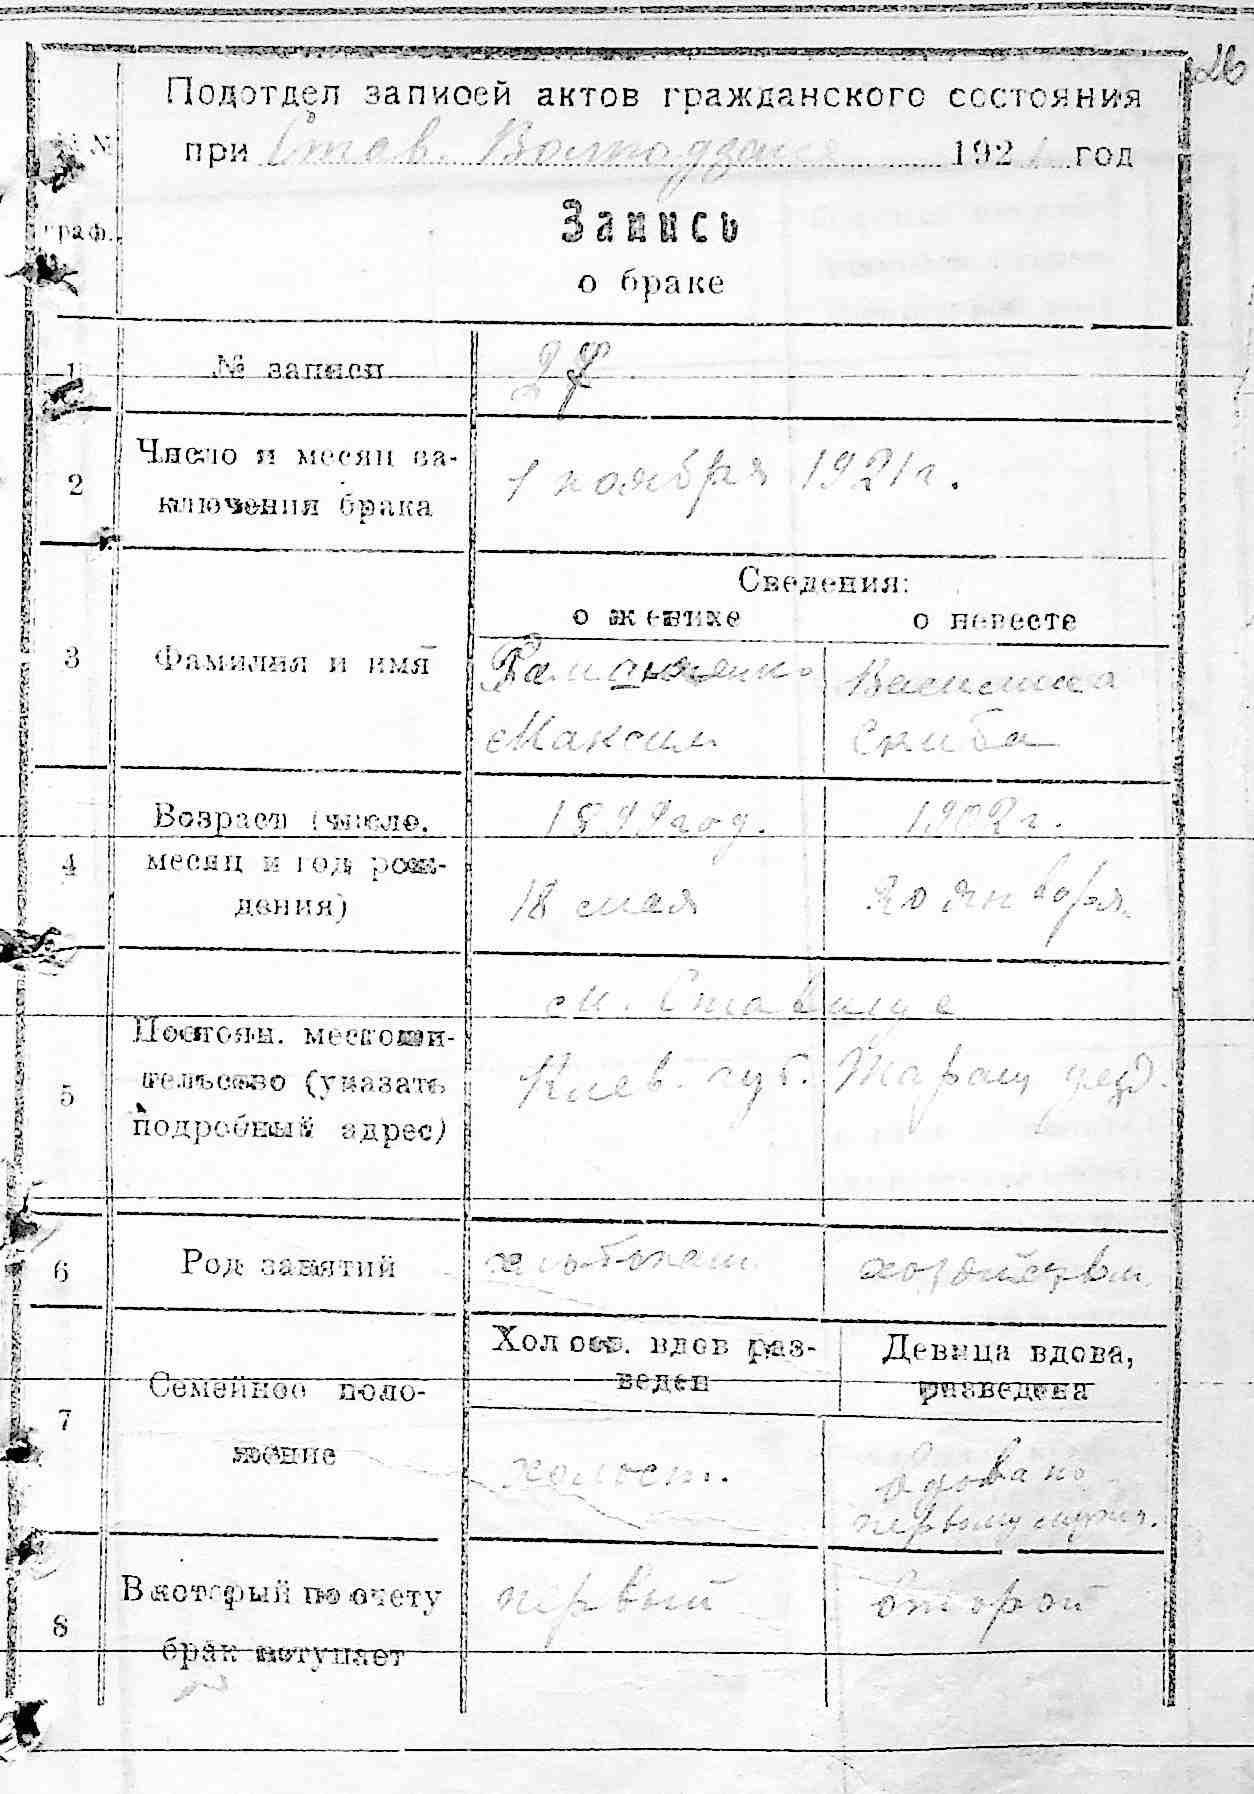 26
Подотдел записей актов гражданского состояния
при Став. 1921 год
№№
граф.
Запись
о браке
1 № записи 27
2 Число и месяц за-
ключения брака
1 ноября 1921 г.
Сведения:
о женихе о невесте
3 Фамилия и имя
Василина
Максим Скиба
4 Возраст (число,
месяц и год рож-
дения)
1899 год. 1902 г.
18 мая 20 января.
5 Постоян. местожи-
тельство (указать
подробный адрес)
м. Ставище
Киев. губ. Таращ уезд.
6 Род занятий
хлебопаш. хозяйств
7 Семейное поло-
жение
Холост. вдов раз-
веден
Девица вдова,
разведена
холост. вдова по
первому мужу.
8 В который по счету
брак вступает
первый второй